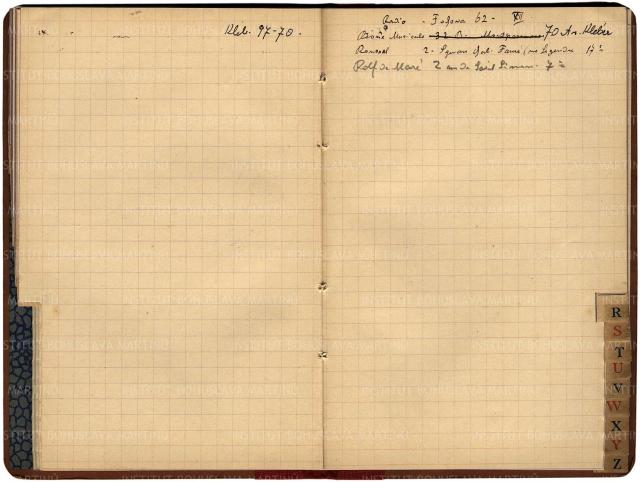 Kleb. 97-70.
Radio - Fofona 62 - XII
Revue Musicale 70 Av. Kléber
Roussel 2. Square Gab. Fauré (rue Legendre 17e
Rolf de Maré 2 rue de Saint Simon. 7e
R
S
T
U
V
W
X
Y
Z
INSTITUT BOHUSLAVA MARTINŮ